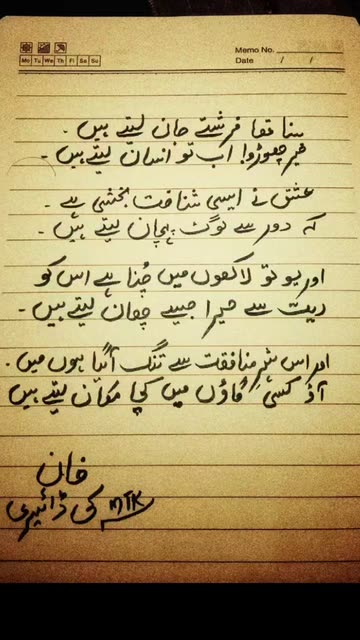 Memo No.
Mo Tu We Th Fr Sa Su
Date / /
سنا تھا فرشتے جان لیتے ہیں ۔
خیر چھوڑو! اب تو انسان لیتے ہیں ۔
عشق نے ایسی شناخت بخشی ہے ۔
کہ دور سے لوگ پہچان لیتے ہیں ۔
اور یو تو لاکھوں میں چُنا ہے اس کو
ریت سے ہیرا جیسے چھان لیتے ہیں ۔
اور اس شہرِ منافقت سے تنگ آگیا ہوں میں ۔
آؤ کسی گاؤں میں کچا مکان لیتے ہیں
خان
MTK کی ڈائیری